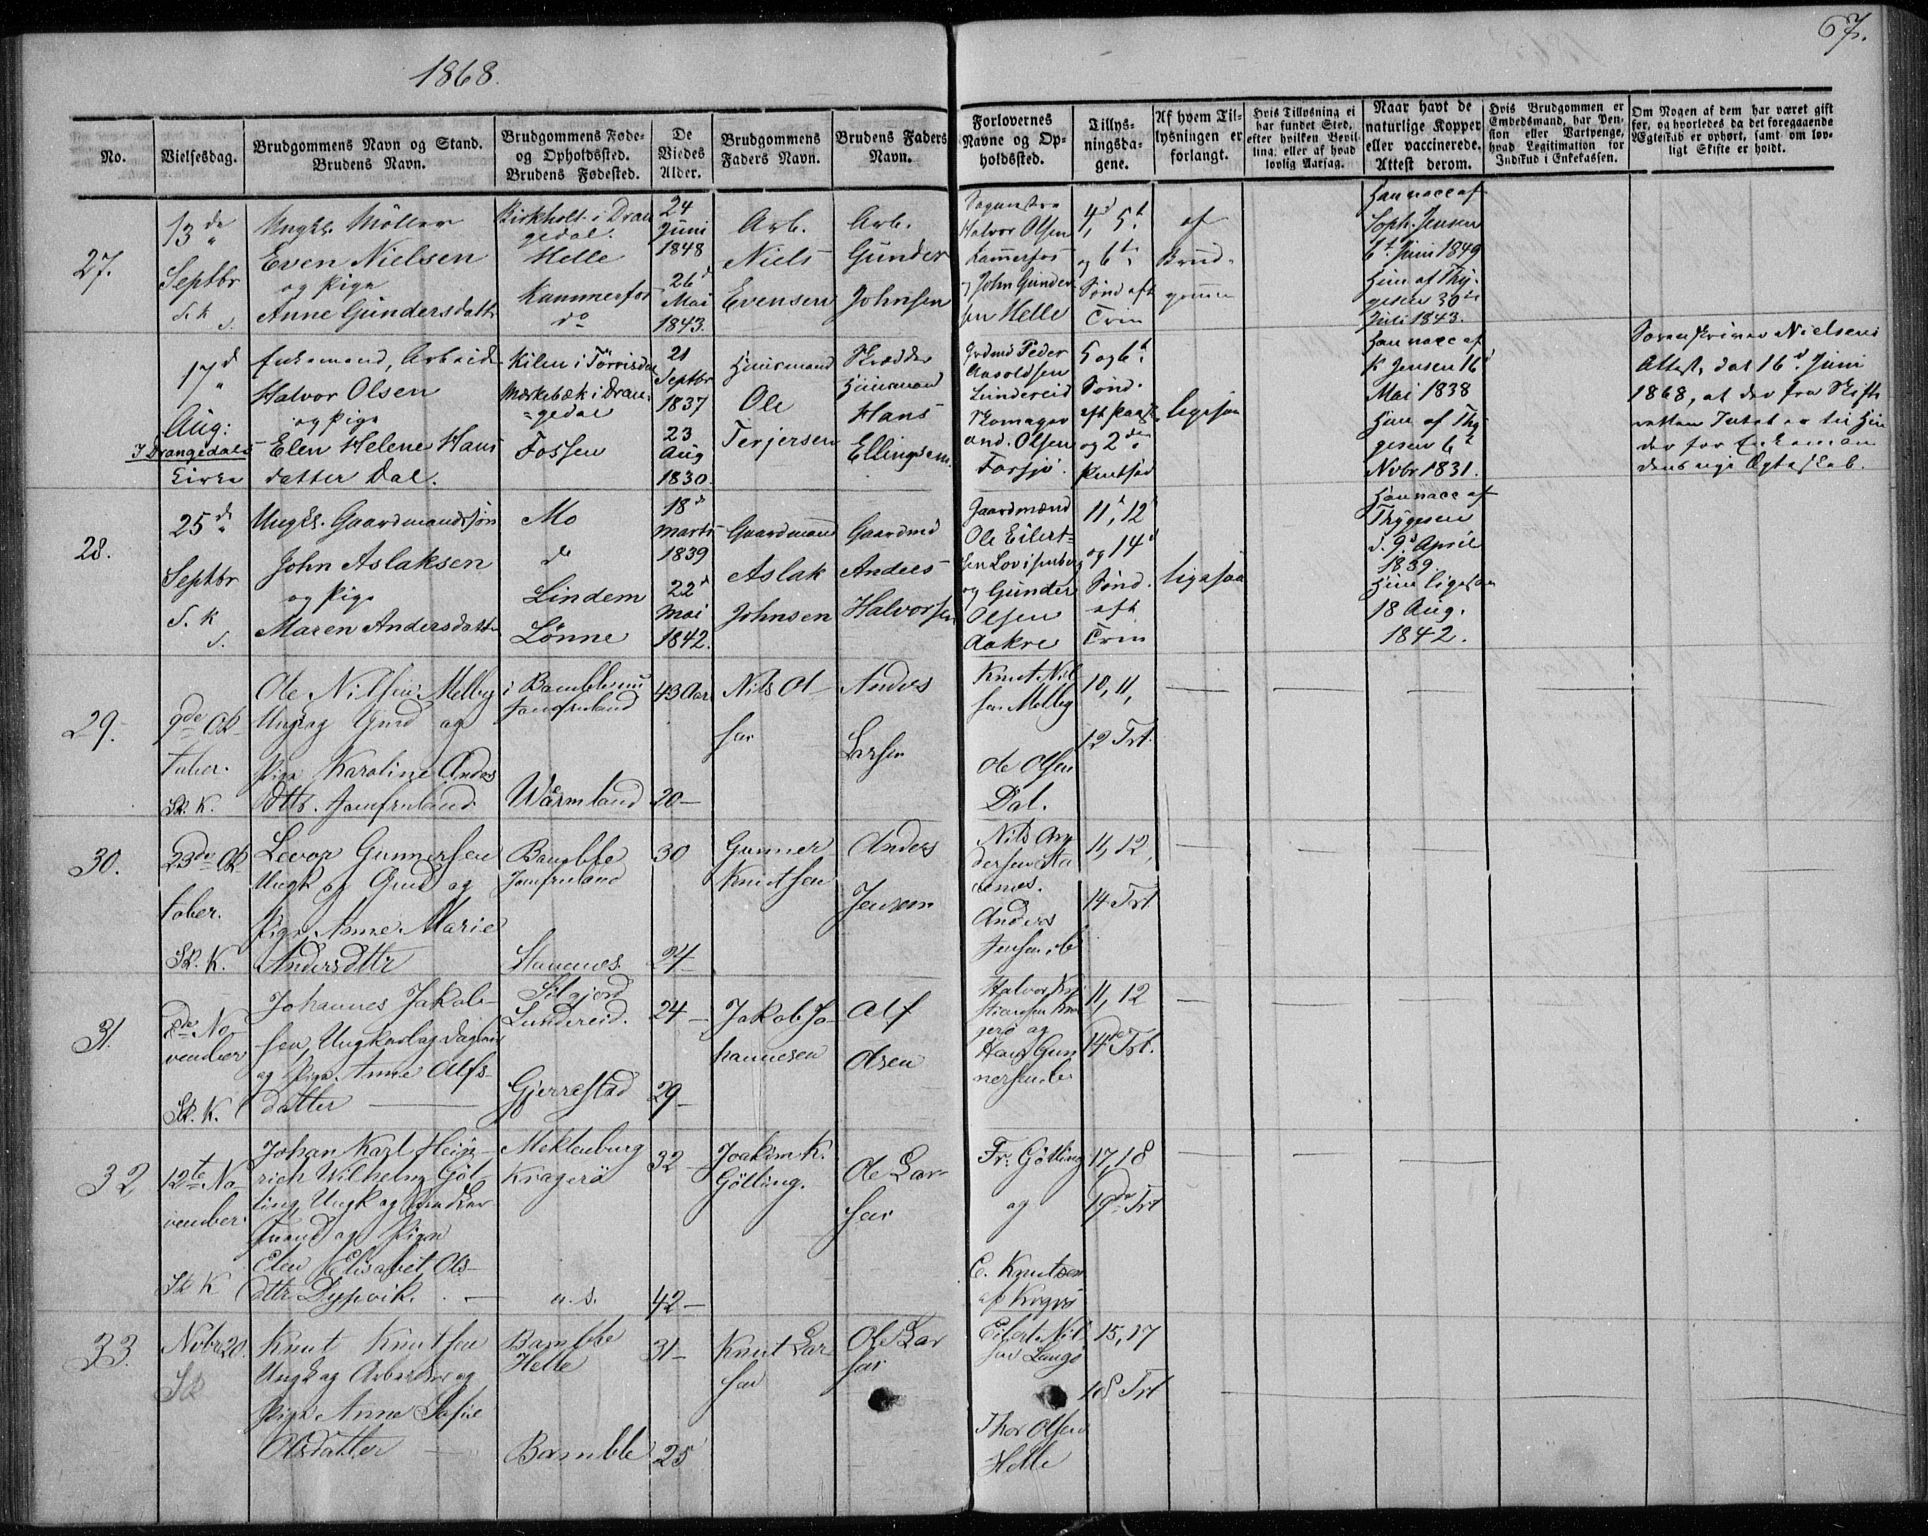 1868.
67.
No.
Vielsesdag.
Brudgommens Navn og Stand.
Brudens Navn.
Brudgommens Føde-
og Opholdssted.
Brudens Fødested.
De
Viedes
Alder.
Brudgommens
Faders Navn.
Brudens Faders
Navn.
Forlovernes
Navne og Op-
holdssted.
Tillys-
ningsda-
gene.
Af hvem Til-
lysningen er
forlangt.
Hvis Tillysning ei
har fundet Sted,
efter hvilken Bevil-
ling, eller af hvad
lovlig Aarsag.
Naar havt de
naturlige Kopper
eller vaccinerede.
Attest derom.
Hvis Brudgommen er
Embedsmand, har Pen-
sion eller Vartpenge,
hvad Legitimation for
Indskud i Enkekassen.
Om Nogen af dem har været gift
før, og hvorledes da det foregaaende
Ægteskab er ophørt, samt om lov-
ligt Skifte er holdt.
27.
13de
Septbr
S. k
Ungk. Möller
Even Nielsen
og Pige
Anne Gundersdatter
Birkholt i Dran
gedal.
Helle
Kammerfos
do
24
Juni
1848
26d
Mai
1843.
Arb.
Niels
Evensen
Arb.
Gunder
Johnsen
Halvor Olsen
Kammerfos
og John Gunder
sen Helle
4d, 5t
og 6t
Sönd. eft
Trin
af
Brud-
gommen
Han vacc. af
Soph. Jensen
6t Juni 1849
Hun af Thy-
gesen 30te
Juli 1843.
17d
Aug:
I Drangedals
Kirke
Enkemand, Arbeider
Halvor Olsen
og Pige
Elen Helene Hans
datter Dal.
Kilen i Törrisdal
Mærkebæk i Dran-
gedal
Fossen
21
Septbr
1837
23
Aug
1830.
Huusmand
Ole
Terjersen
Skrædder
Huusmand
Hans
Ellingsen
Grdmd Peder
Aasoldsen
Lundereid
Skomager
And. Olsen
Forsjö.
5 og 6t
Sönd.
eft Paask
og 2den
Pintsed
ligesaa
Han vacc af
K Jensen 16d
Mai 1838
Hun af Thy
gesen 6t
Novbr 1831.
Sorenskriver Nielsens
Attest, dat 16d Juni
1868, at der fra Skifte
retten Intet er til Hin
der for Enkeman
dens nye Ægteskab.
28.
25de
Septbr
S. k
Ungk. Gaardmandssön
John Aslaksen
og Pige
Maren Andersdatter
Mo
do
Lindem
Lönne
18d
Marts
1839
22d
Mai
1842.
Gaardmand
Aslak
Johnsen
Gaardmd
Anders
Halvorsen
Gaardmænd
Ole Eilert-
sen Lovisenberg
og Gunder
Olsen
Aakre
11t, 12t
og 14d
Sönd.
eft
Trin
ligesaa
Han vacc af
Thygesen
d. 9d April
1839.
Hun ligesaa
18 Aug.
1842.
29.
9de Ok-
tober.
Sk. K.
Ole Nilsen Melby
Ungk og Gmd og
Pige Karoline Anders
dttr. Jomfruland
i Bamble nu
Jomfruland
Wärmland
43 Aar
20 —
Nils Ol-
sen
Andrs
Larsen
Knut Nil
sen Melby
Ole Olsen
Dal.
10, 11,
12 Trt.
30.
23de Ok
tober.
Sk. K.
Levor Gunnersen
Ungk og Gmd og
Pige Anne Marie
Andersdttr
Bamble
Jomfruland
Stavenes
30
24
Gunner
Knutsen
Anders
Jensen
Nils An
dersen Sta
venes.
Anders
Jensen ib
11, 12,
14 Trt
31.
8de No
vember
Sk. K.
Johannes Jakob-
sen, Ungkarl og Dagarb
og Pige Anne Alfs-
datter
Siljord
Lundereid.
Gjerrestad
24 —
29 —
Jakob Jo-
hannesen
Alf
Olsen
Halvor Kri
stiansen Kra
gerö og
Hans Gun
nersen ib
11, 12
14de Trt.
32
12te No-
vember.
Sk K
Johan Karl Hein-
rich Wilhelm Göt
ling, Ungk og
og Pige
Elen Elisabet Ols-
dttr Dypvik.
Meklenburg
Kragerö
a. s.
32 —
42 —
Joakim K.
Götling.
Ole Lar-
sen
Fr. Götling
og
E. Knutsen
af Kragerö
17, 18
19de Trt
33.
Nvbr 20.
Sk
Knut Knutsen
Ungk og Arbeider og
Pige Anne Sofie
Olsdatter
Bamble
Helle
Bamble
31 —
25
Knut Lar-
sen
Ole Lar
sen
Eilert Nil-
sen Langö
Thor Olsen
Helle
15, 17
18 Trt